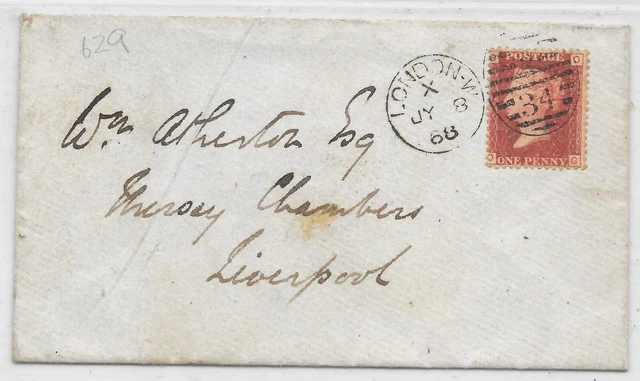 629
LONDON-W
X
JY 8
68
POSTAGE
34
O G
ONE PENNY
Wm Atherton Esq
Mersey Chambers
Liverpool